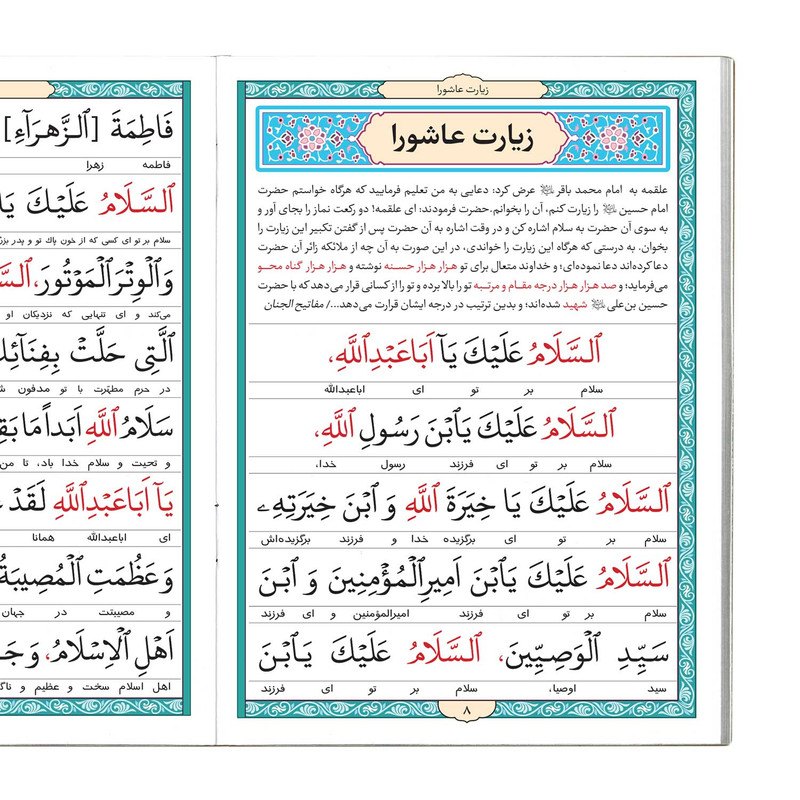 زیارت عاشورا
زیارت عاشورا
علقمه به امام محمد باقر عرض کرد: دعایی به من تعلیم فرمایید که هرگاه خواستم حضرت
امام حسین را زیارت کنم، آن را بخوانم. حضرت فرمودند: ای علقمه! دو رکعت نماز را بجای آور و
به سوی آن حضرت به سلام اشاره کن و در وقت اشاره به آن حضرت پس از گفتن تکبیر این زیارت را
بخوان. به درستی که هرگاه این زیارت را خواندی، در این صورت به آن چه از ملائکه زائر آن حضرت
دعا کرده‌اند دعا نموده‌ای؛ و خداوند متعال برای تو هزار هزار حسنه نوشته و هزار هزار گناه محو
می‌فرماید؛ و صد هزار هزار درجه مقـام و مرتبـه تو را بالا برده و تو را از کسانی قرار می‌دهد که با حضرت
حسین بن‌علی شهید شده‌اند؛ و بدین ترتیب در درجه ایشان قرارت می‌دهد.../ مفاتیح الجنان
اَلسَّلَامُ عَلَيْكَ يَآ اَبَاعَبْدِاللَّهِ،
سلام بر تو ای اباعبدالله
اَلسَّلَامُ عَلَيْكَ يَابْنَ رَسُولِ اللَّهِ،
سلام بر تو ای فرزند رسول خدا،
اَلسَّلَامُ عَلَيْكَ يَا خِيَرَةَ اللَّهِ وَ ابْنَ خِيَرَتِهِے
سلام بر تو ای برگزیده خدا و فرزند برگزیده‌اش
اَلسَّلَامُ عَلَيْكَ يَابْنَ اَمِيرِالْمُؤْمِنِينَ وَ ابْنَ
سلام بر تو ای فرزند امیرالمؤمنین و ای فرزند
سَيِّدِ الْوَصِيِّينَ، اَلسَّلَامُ عَلَيْكَ يَابْنَ
سید اوصیا، سلام بر تو ای فرزند
۸
فَاطِمَةَ [الزَّهرَآءِ]
فاطمه زهرا
اَلسَّلَامُ عَلَيْكَ يَا
سلام بر تو ای کسی که از خون پاک تو و پدر
وَالْوِتْرَ الْمَوْتُورَ،
می‌کند و ای تنهایی که نزدیکان او
الَّتِي حَلَّتْ
در حرم مطهّرت با تو مدفون
سَلَامُ اللَّهِ اَبَداً مَا
و تحیت و سلام خدا باد، تا من
يَآ اَبَاعَبْدِاللَّهِ لَقَدْ
ای اباعبدالله همانا
وَعَظُمَتِ الْمُصِيبَةُ
و مصیبتت در جهان
اَهْلِ الْاِسْلَامِ، وَ
اهل اسلام سخت و عظیم و